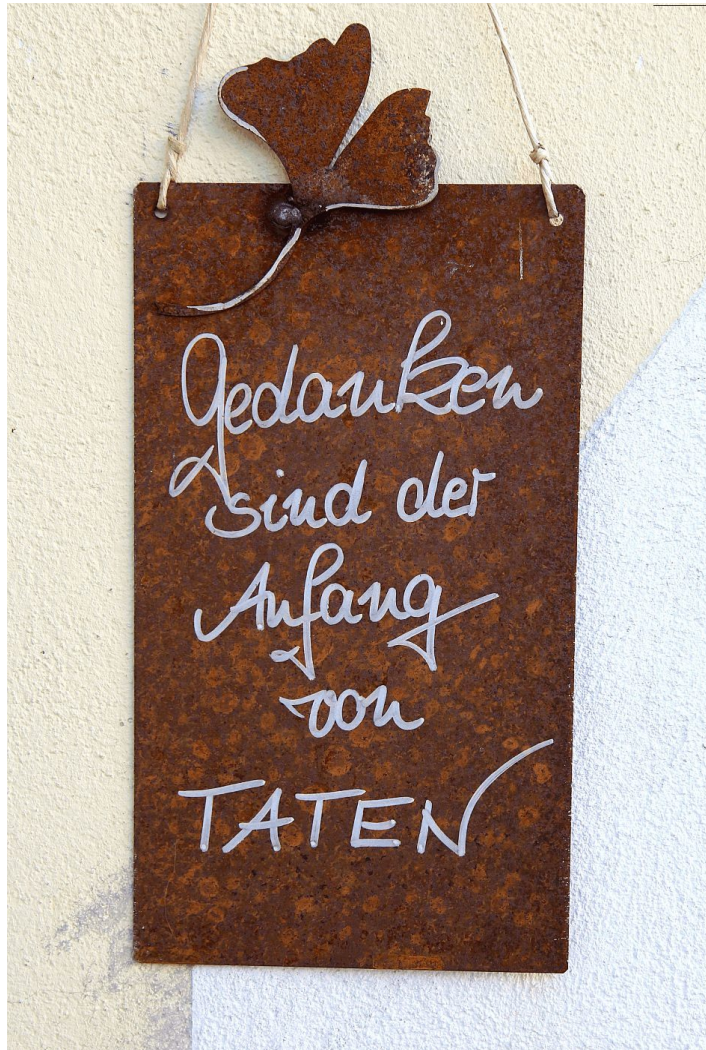 Gedanken
sind der
Anfang
von
TATEN